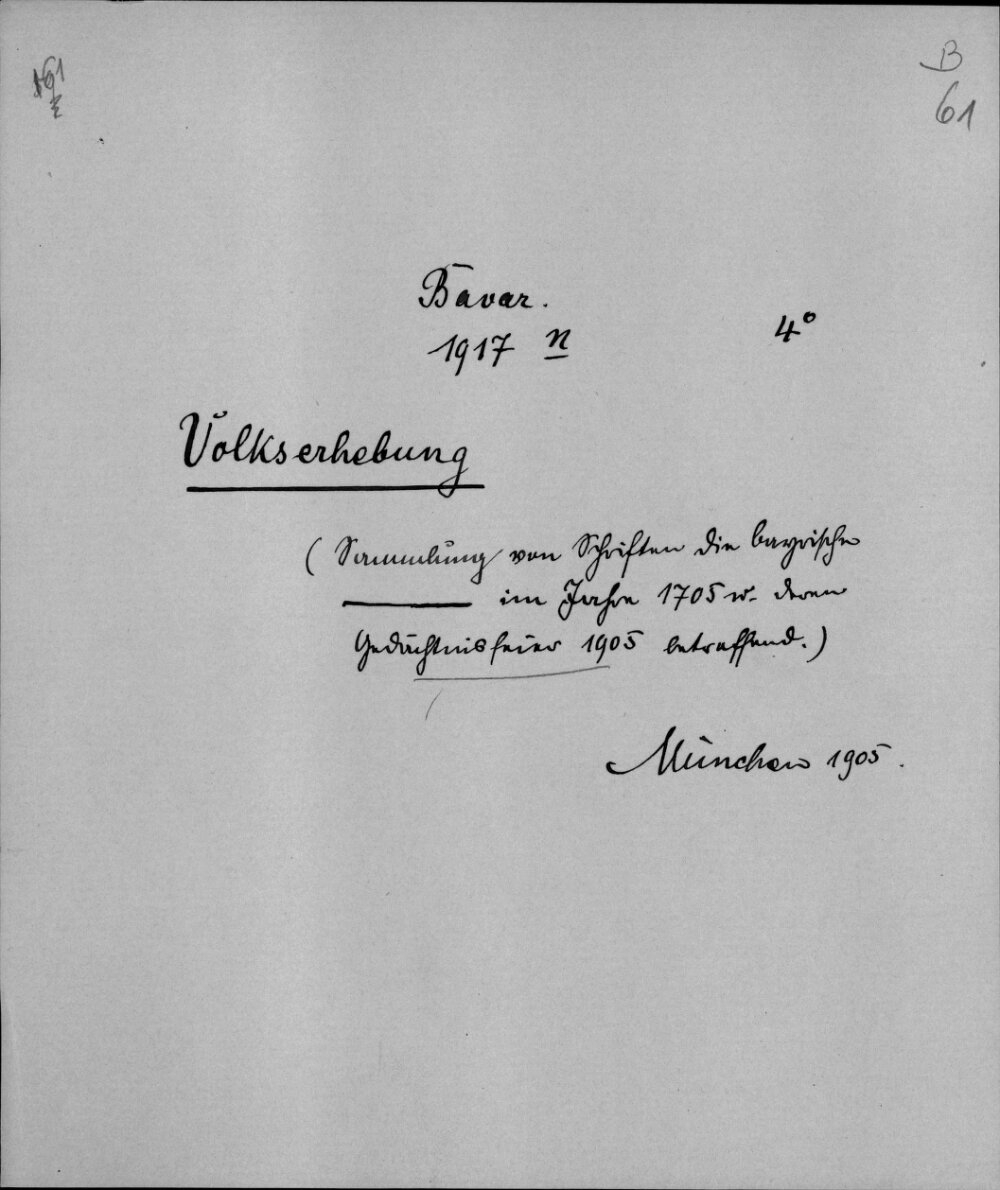 B
61
Bavar.
1917 n 4°
Volkserhebung
(Sammlung von Schriften die bayrische
——— im Jahre 1705 u. deren
Gedächtnisfeier 1905 betreffend.)
München 1905.